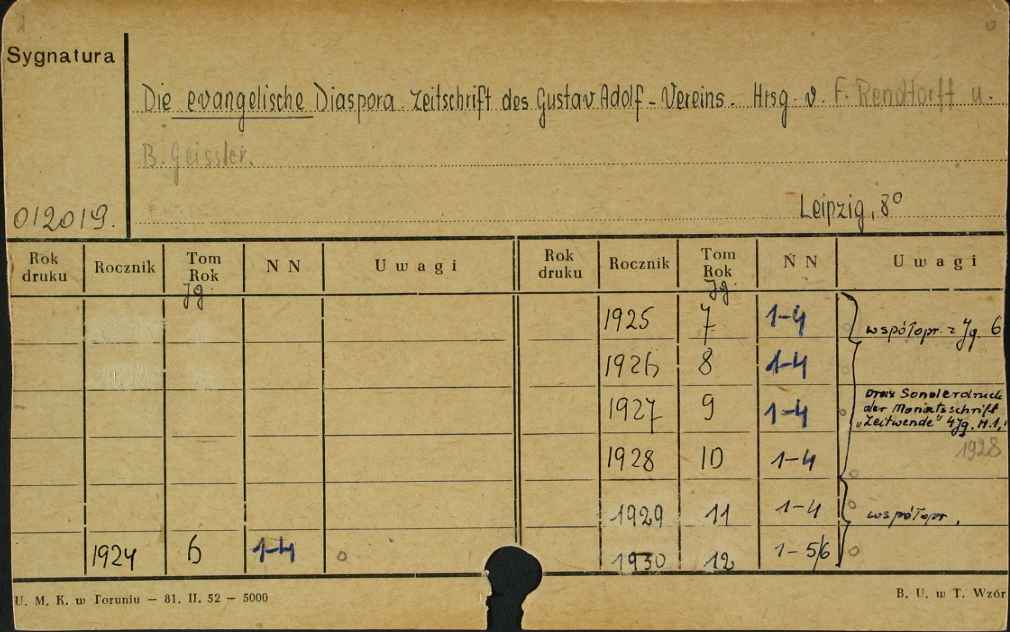 Sygnatura
Die evangelische Diaspora. Zeitschrift des Gustav Adolf-Vereins. Hrsg. v. F. Rendtorff u.
B. Geissler.
012019.
Leipzig, 8°
Rok druku Rocznik Tom Rok Jg. N N Uwagi Rok druku Rocznik Tom Rok Jg. N N Uwagi
1925 7 1-4 współopr. z Jg. 6
1926 8 1-4
1927 9 1-4 oraz Sonderdruck
der Monatsschrift
"Zeitwende" 4 Jg. H.1,
1928
1928 10 1-4
1929 11 1-4 współopr.
1924 6 1-4 1930 12 1-5/6
U. M. K. w Toruniu — 81. II. 52 — 5000 B. U. w T. Wzór